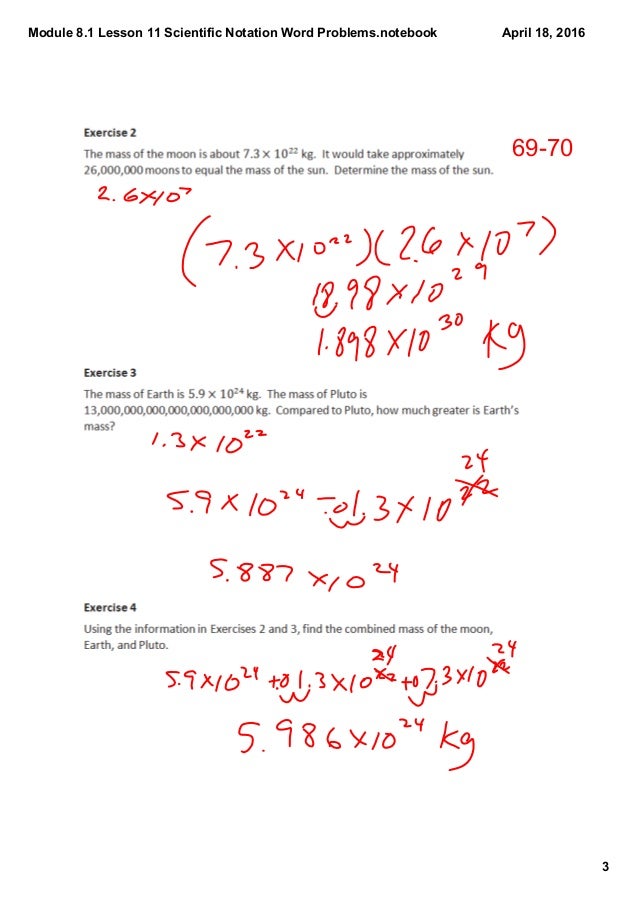 Module 8.1 Lesson 11 Scientific Notation Word Problems.notebook April 18, 2016
Exercise 2
The mass of the moon is about 7.3 × 10²² kg. It would take approximately 69-70
26,000,000 moons to equal the mass of the sun. Determine the mass of the sun.
2.6×10⁷
(7.3 ×10²²)(2.6 ×10⁷)
18.98×10²⁹
1.898×10³⁰ kg
Exercise 3
The mass of Earth is 5.9 × 10²⁴ kg. The mass of Pluto is
13,000,000,000,000,000,000,000 kg. Compared to Pluto, how much greater is Earth's
mass?
1.3×10²²
24
5.9×10²⁴ -.01.3×10²²
5.887 ×10²⁴
Exercise 4
Using the information in Exercises 2 and 3, find the combined mass of the moon,
Earth, and Pluto.
24 24
5.9×10²⁴ +.01.3×10²² +.07.3×10²²
5.986×10²⁴ kg
3